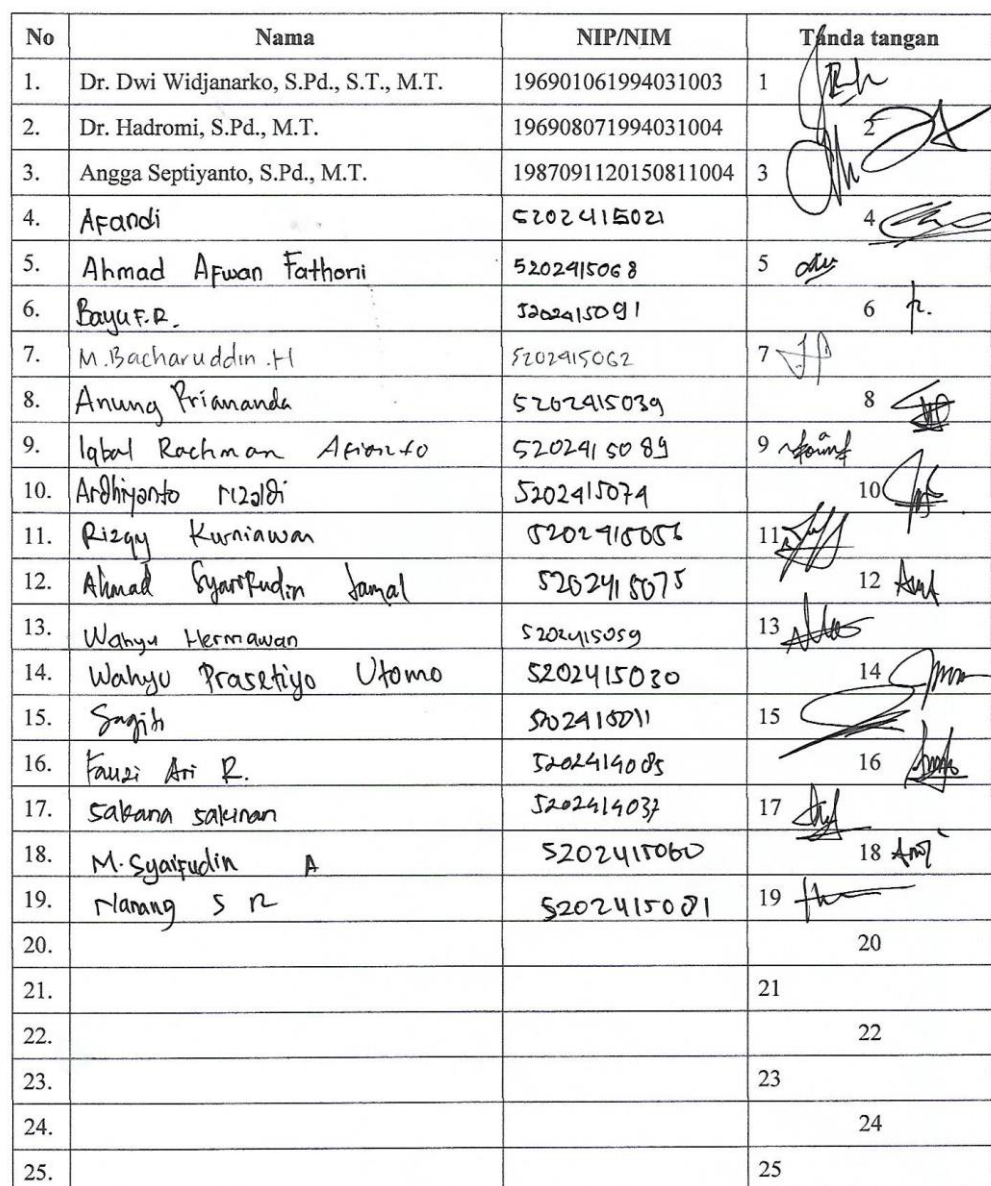 No Nama NIP/NIM Tanda tangan
1. Dr. Dwi Widjanarko, S.Pd., S.T., M.T. 196901061994031003 1
2. Dr. Hadromi, S.Pd., M.T. 196908071994031004 2
3. Angga Septiyanto, S.Pd., M.T. 1987091120150811004 3
4. Afandi 5202415021 4
5. Ahmad Afwan Fathoni 5202415068 5
6. Bayu F.R. 5202415091 6
7. M. Bacharuddin .H 5202415062 7
8. Anung Priananda 5202415039 8
9. Iqbal Rachman 5202415089 9
10. Ardhiyanto rizaldi 5202415074 10
11. Rizqy Kurniawan 11
12. Ahmad Syarifudin Jamal 5202415075 12
13. Wahyu Hermawan 5202415059 13
14. Wahyu Prasetiyo Utomo 5202415030 14
15. 5202415011 15
16. Fauzi Ari R. 5202414085 16
17. sakinan 5202414037 17
18. M. Syaifudin A 5202415060 18
19. Nanang S R 5202415081 19
20. 20
21. 21
22. 22
23. 23
24. 24
25. 25